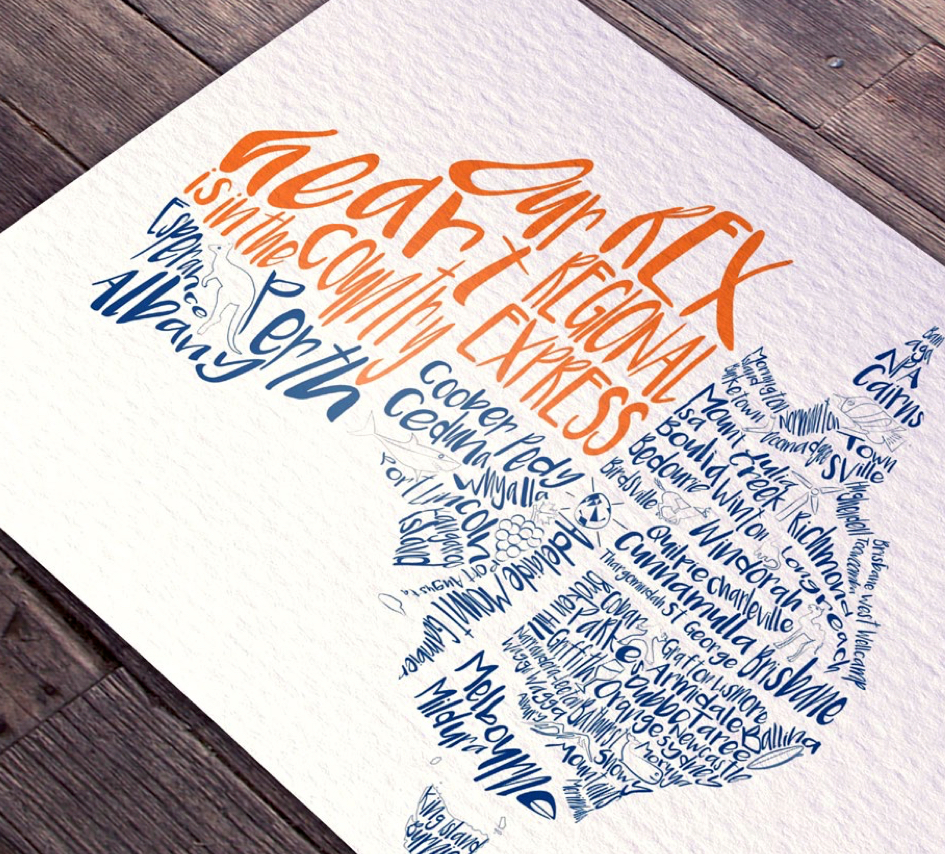 Our REX
REGIONAL
EXPRESS
heart
is in the country
Esperance
Albany
Perth
Coober Pedy
Ceduna
Whyalla
Port Lincoln
Kangaroo
Island
Port Augusta
Adelaide
Mount Gambier
Bamaga
NPA
Cairns
Mornington
Island
Burketown
Normanton
Doomadgee
Townsville
Mount
Isa
Julia
Creek
Boulia
Winton
Richmond
Hughenden
Bedourie
Birdsville
Windorah
Longreach
Toowoomba
Brisbane West Wellcamp
Quilpie
Charleville
Cunnamulla
Thargomindah
St George
Brisbane
Broken Hill
Parkes
Grafton
Lismore
Armidale
Griffith
Dubbo
Taree
Ballina
Narrandera
Orange
Newcastle
Sydney
Wagga Wagga
Bathurst
Albury
Snowy
Moruya
Merimbula
Melbourne
Mildura
King Island
Burnie